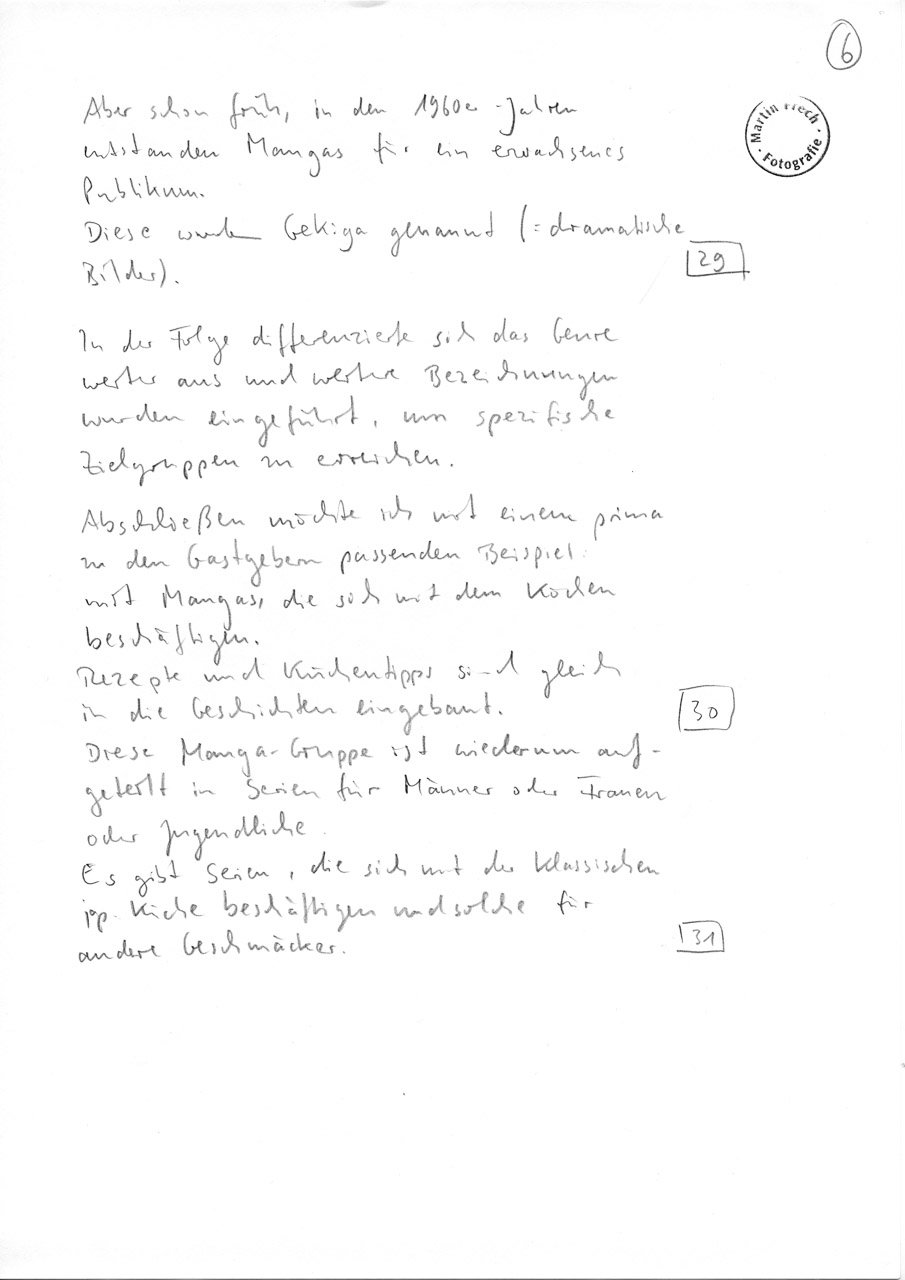 6
Aber schon früh, in den 1960er-Jahren
entstanden Mangas für ein erwachsenes
Publikum.
Martin Frech · Fotografie ·
Diese wurden Gekiga genannt (= dramatische
Bilder).
29
In der Folge differenzierte sich das Genre
weiter aus und weitere Bezeichnungen
wurden eingeführt, um spezifische
Zielgruppen zu erreichen.
Abschließen möchte ich mit einem prima
zu den Gastgebern passenden Beispiel:
mit Mangas, die sich mit dem Kochen
beschäftigen.
Rezepte und Küchentipps sind gleich
in die Geschichten eingebaut.
30
Diese Manga-Gruppe ist wiederum auf-
geteilt in Serien für Männer oder Frauen
oder Jugendliche.
Es gibt Serien, die sich mit der klassischen
jap. Küche beschäftigen und solche für
andere Geschmäcker.
31